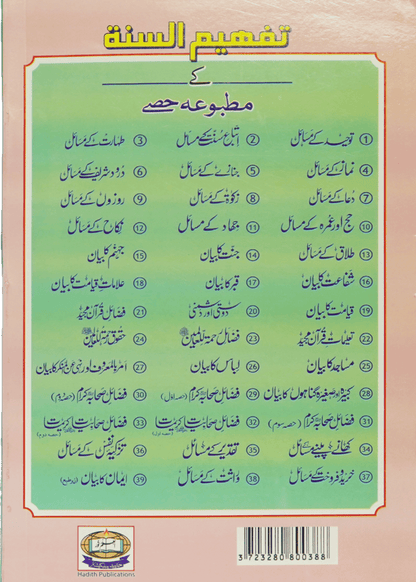 تفہیم السنة
کے
مطبوعہ حصے
1 توحید کے مسائل 2 اتباع سنت کے مسائل 3 طہارت کے مسائل
4 نماز کے مسائل 5 جنازے کے مسائل 6 درود شریف کے مسائل
7 دعا کے مسائل 8 زکوٰۃ کے مسائل 9 روزوں کے مسائل
10 حج اور عمرہ کے مسائل 11 جہاد کے مسائل 12 نکاح کے مسائل
13 طلاق کے مسائل 14 جنت کا بیان 15 جہنم کا بیان
16 شفاعت کا بیان 17 قبر کا بیان 18 علامات قیامت کا بیان
19 قیامت کا بیان 20 دوستی اور دشمنی 21 فضائل قرآن مجید
22 تعلیمات قرآن مجید 23 فضائل رحمۃ للعالمین ﷺ 24 حقوق رحمۃ للعالمین ﷺ
25 مساجد کا بیان 26 لباس کا بیان 27 امر بالمعروف اور نہی عن المنکر کا بیان
28 کبیرہ اور صغیرہ گناہوں کا بیان 29 فضائل صحابہ کرام (حصہ اول) 30 فضائل صحابہ کرام (حصہ دوم)
31 فضائل صحابہ کرام (حصہ سوم) 32 فضائل صحابیات (حصہ اول) 33 فضائل صحابیات (حصہ دوم)
34 کھانے پینے کے مسائل 35 تقدیر کے مسائل 36 تزکیہ نفس کے مسائل
37 خرید و فروخت کے مسائل 38 وراثت کے مسائل 39 ایمان کا بیان (زیر طبع)
Hadith Publications
3 723280 800388